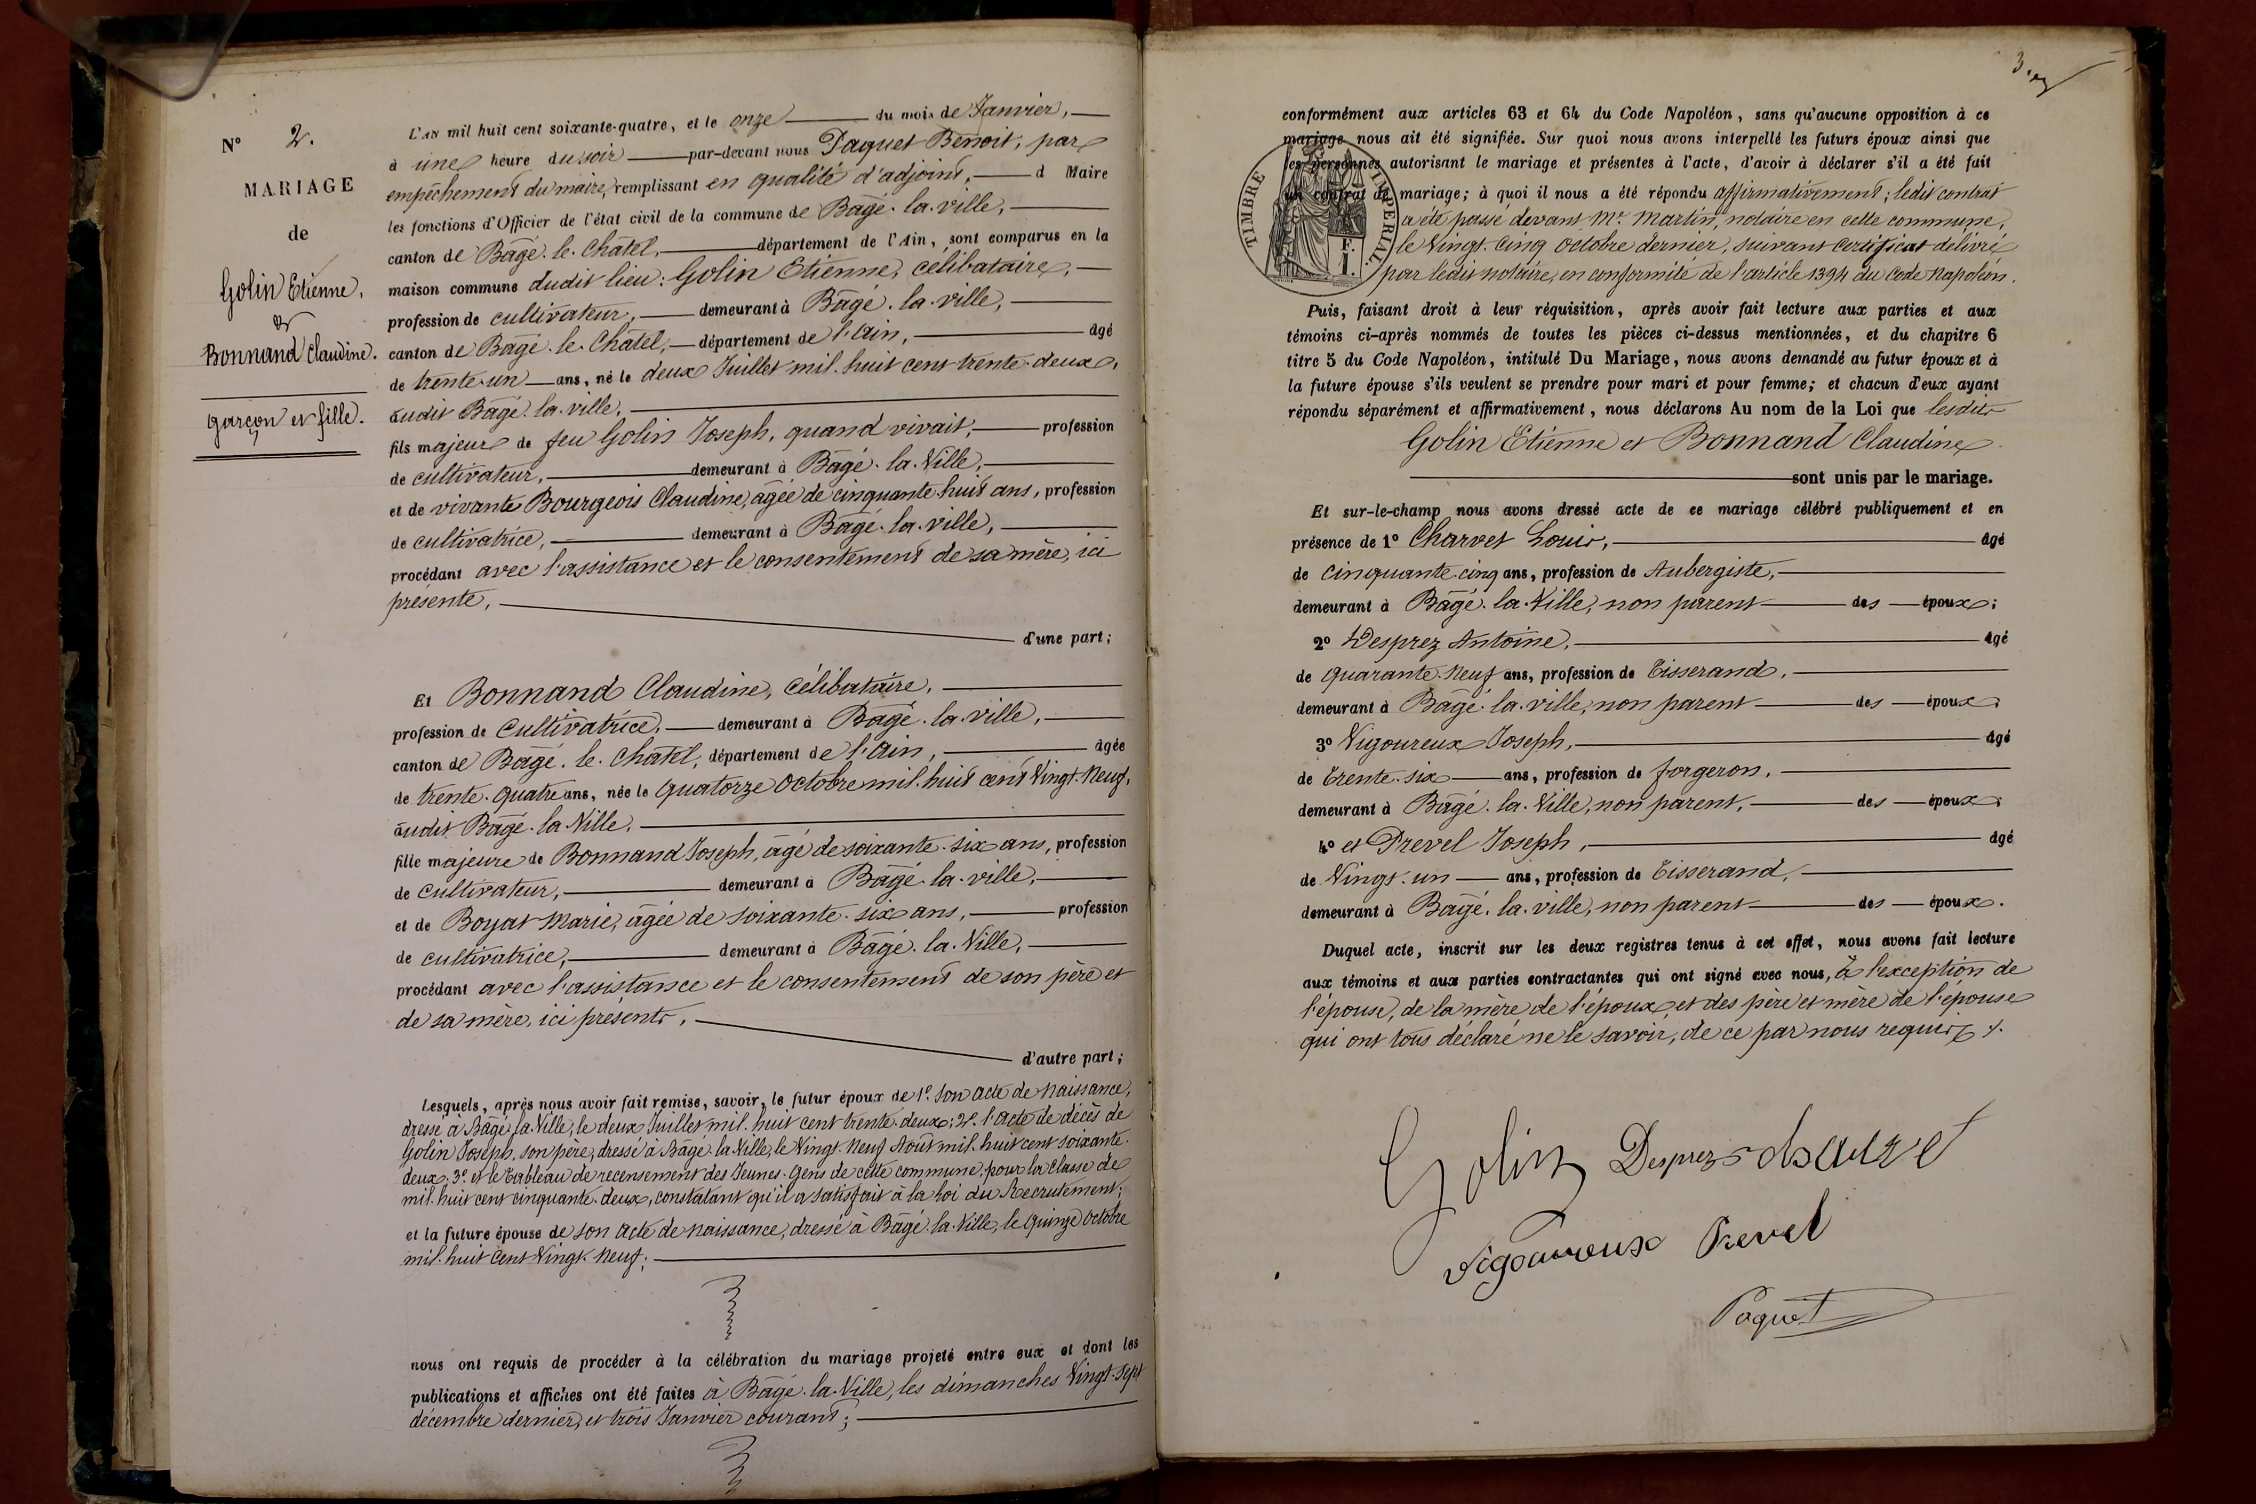 N° 2.
MARIAGE
de
Golin Etienne,
&
Bonnand Claudine.
garçon et fille.
L'AN mil huit cent soixante-quatre, et le onze du mois de Janvier,
à une heure du soir par-devant nous Paquet Benoit, par
empêchement du maire, remplissant en qualité d'adjoint, d Maire
les fonctions d'Officier de l'état civil de la commune de Bâgé-la-ville,
canton de Bâgé-le-Châtel, département de l'Ain, sont comparus en la
maison commune dudit lieu: Golin Etienne, célibataire,
profession de cultivateur, demeurant à Bâgé-la-ville,
canton de Bâgé-le-Châtel, département de l'Ain, âgé
de trente-un ans, né le deux Juillet mil-huit cent trente-deux,
audit Bâgé-la-ville,
fils majeur de feu Golin Joseph, quand vivait, profession
de cultivateur, demeurant à Bâgé-la-Ville,
et de vivante Bourgeois Claudine, âgée de cinquante-huit ans, profession
de cultivatrice, demeurant à Bâgé-la-ville,
procédant avec l'assistance et le consentement de sa mère, ici
présente,
d'une part;
Et Bonnand Claudine, célibataire,
profession de cultivatrice, demeurant à Bâgé-la-ville,
canton de Bâgé-le-Châtel, département de l'Ain, âgée
de trente-quatre ans, née le quatorze Octobre mil-huit cent Vingt-Neuf,
audit Bâgé-la-Ville,
fille majeure de Bonnand Joseph, âgé de soixante-six ans, profession
de cultivateur, demeurant à Bâgé-la-ville,
et de Boyat Marie, âgée de soixante-six ans, profession
de cultivatrice, demeurant à Bâgé-la-Ville,
procédant avec l'assistance et le consentement de son père et
de sa mère, ici présents,
d'autre part;
Lesquels, après nous avoir fait remise, savoir, le futur époux de 1° son acte de naissance,
dressé à Bâgé-la-Ville, le deux Juillet mil-huit cent trente-deux; 2° l'acte de décès de
Golin Joseph, son père, dressé à Bâgé-la-Ville, le Vingt-Neuf Août mil-huit cent soixante-
deux; 3° et le tableau de recensement des Jeunes-Gens de cette commune, pour la classe de
mil-huit cent cinquante-deux, constatant qu'il a satisfait à la loi du Recrutement;
et la future épouse de son acte de naissance, dressé à Bâgé-la-Ville, le quinze Octobre
mil-huit cent Vingt-Neuf;
nous ont requis de procéder à la célébration du mariage projeté entre eux et dont les
publications et affiches ont été faites à Bâgé-la-Ville, les dimanches Vingt-Sept
décembre dernier, et trois Janvier courant;
3
conformément aux articles 63 et 64 du Code Napoléon, sans qu'aucune opposition à ce
mariage nous ait été signifiée. Sur quoi nous avons interpellé les futurs époux ainsi que
les personnes autorisant le mariage et présentes à l'acte, d'avoir à déclarer s'il a été fait
un contrat de mariage; à quoi il nous a été répondu affirmativement; ledit contrat
a été passé devant Me Martin, notaire en cette commune,
le Vingt-Cinq Octobre dernier, suivant certificat délivré
par ledit notaire, en conformité de l'article 1394 du Code Napoléon.
TIMBRE IMPERIAL.
F.
1.
Puis, faisant droit à leur réquisition, après avoir fait lecture aux parties et aux
témoins ci-après nommés de toutes les pièces ci-dessus mentionnées, et du chapitre 6
titre 5 du Code Napoléon, intitulé Du Mariage, nous avons demandé au futur époux et à
la future épouse s'ils veulent se prendre pour mari et pour femme; et chacun d'eux ayant
répondu séparément et affirmativement, nous déclarons Au nom de la Loi que lesdits
Golin Etienne et Bonnand Claudine
sont unis par le mariage.
Et sur-le-champ nous avons dressé acte de ce mariage célébré publiquement et en
présence de 1° Charvet Louis, âgé
de Cinquante-cinq ans, profession de Aubergiste,
demeurant à Bâgé-la-Ville, non parent des époux;
2° Desprez Antoine, âgé
de quarante-Neuf ans, profession de Tisserand,
demeurant à Bâgé-la-ville, non parent des époux;
3° Vigoureux Joseph, âgé
de trente-six ans, profession de forgeron,
demeurant à Bâgé-la-Ville, non parent, des époux;
4° et Prevel Joseph, âgé
de Vingt-un ans, profession de Tisserand,
demeurant à Bâgé-la-ville, non parent des époux.
Duquel acte, inscrit sur les deux registres tenus à cet effet, nous avons fait lecture
aux témoins et aux parties contractantes qui ont signé avec nous, à l'exception de
l'épouse, de la mère de l'époux, et des père et mère de l'épouse
qui ont tous déclaré ne le savoir, de ce par nous requis
Golin Desprez
Vigoureux Prevel
Paquet